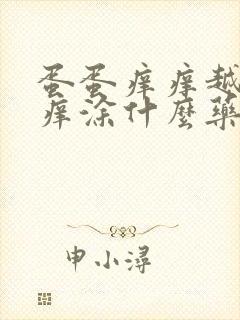 蛋蛋痒痒越
痒涂什麼藥
申小潯